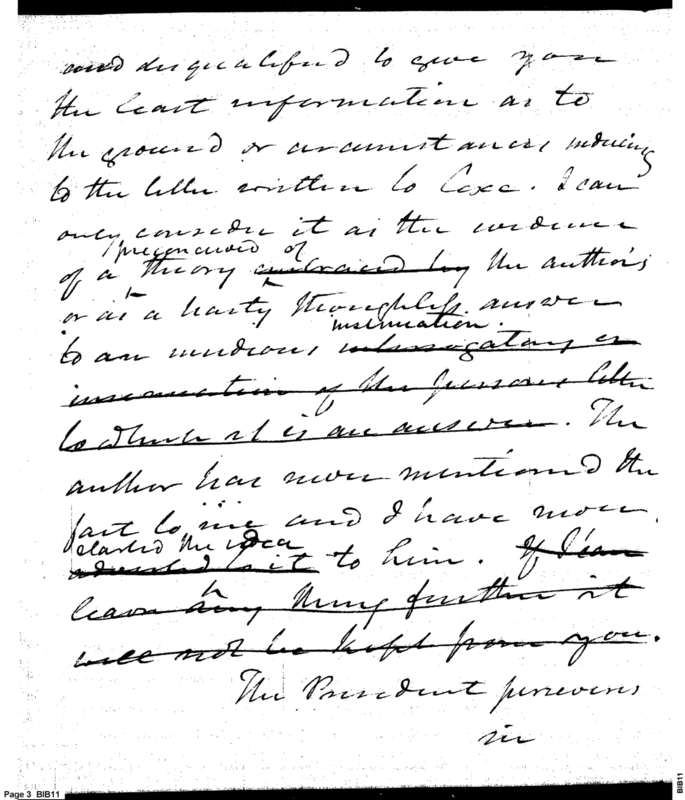 and disqualified to give you
the least information as to
the ground or circumstances inducing
to the letter written to Coxe. I can
only consider it as the evidence
preconceived of
of a theory embraced by the author's
or as a hasty thoughtless answer
insinuation.
to an invidious interrogatory or
insinuation of the persons letter
to which it is an answer. The
author has never mentioned the
fact to me and I have never
started the idea
it to him. If I can
learn any thing further it
will not be kept from you.
The President perseveres
in
Page 3 BIB11
BIB11